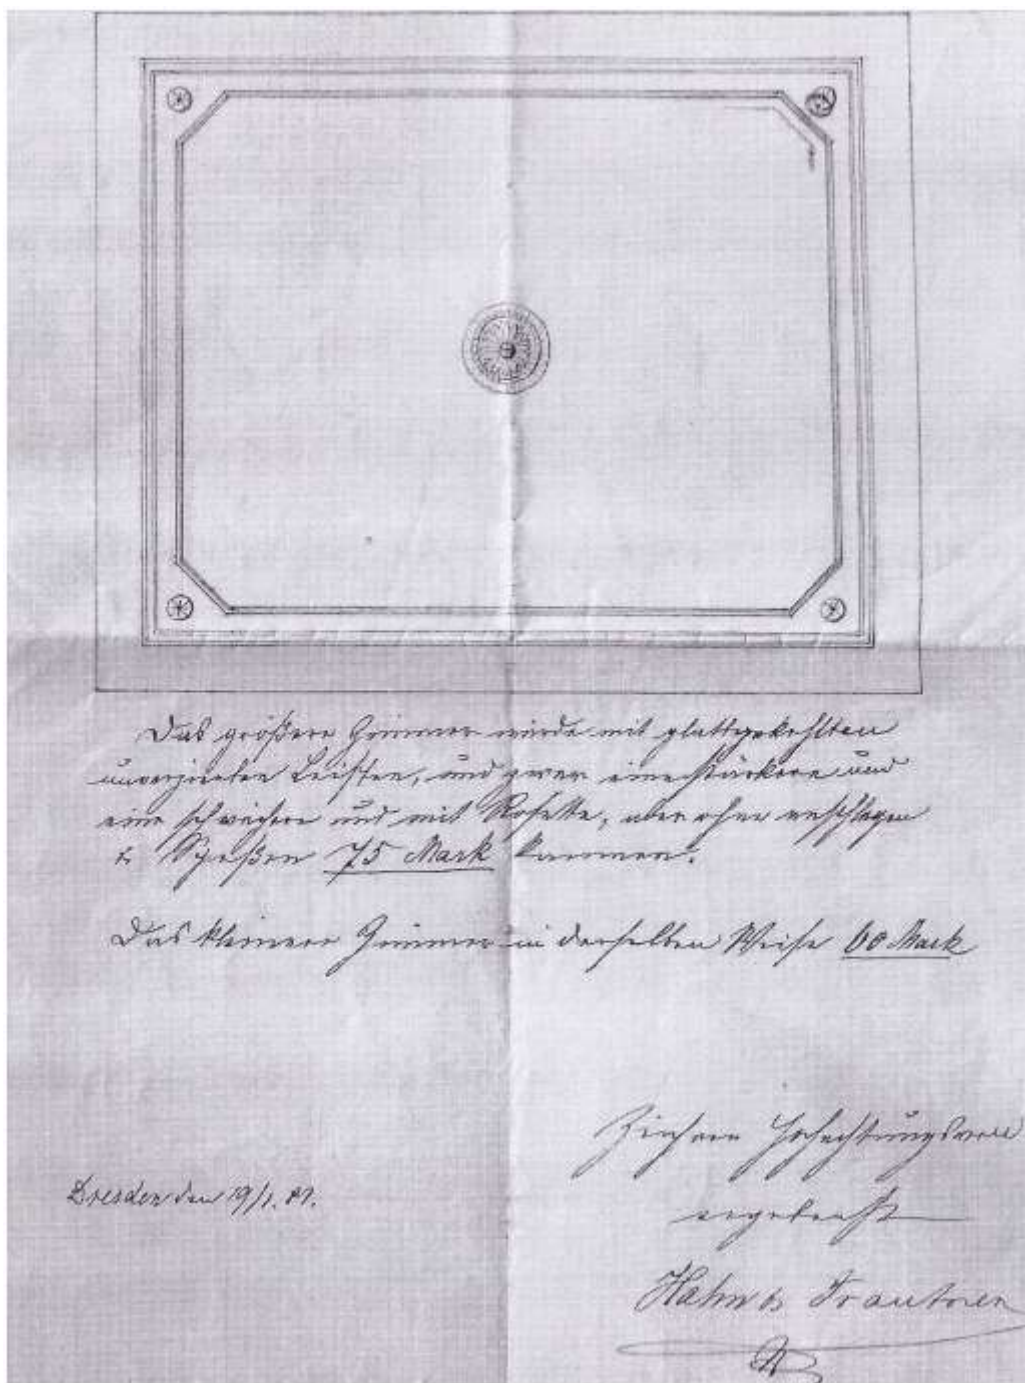 Das größere Zimmer würde mit glattgekehlten
unverzierten Leisten, und zwar eine stärkere und
eine schwächere und mit Rosette, aber ohne anschlagen
75 Mark kommen.
Das kleinere Zimmer in derselben Weise 60 Mark
Hochachtungsvoll
ergebenst
Dresden den 19/1.
Hahn &